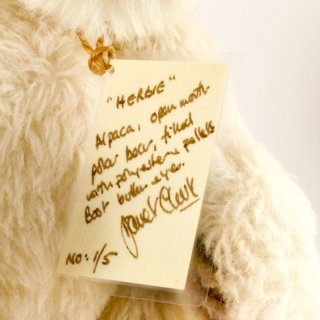 "HERBIE"
Alpaca, open mouth
polar bear, filled
with polyester + pellets
Boot button eyes.
Janet Clark
NO: 1/5